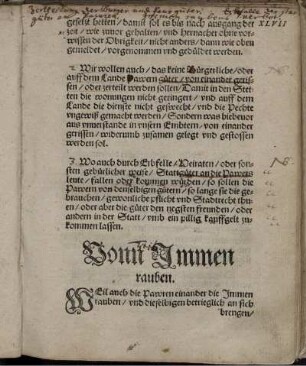 gesetzt hetten / damit sol es bis nach ausgang der XLVII
zeit / wie zuuor gehalten / vnd hernacher ohne vor-
wissen der Obrigkeit / nicht anders / dann wie oben
gemeldet / vorgenommen vnd geduldet werden.
2. Wir wollen auch / das keine Bürgerliche / oder
auff dem Lande Pawren güter / von einander geris-
sen / oder zerteilt werden sollen / Damit in den Stet-
ten die wonungen nicht geringert / vnd auff dem
Lande die dienste nicht geschwecht / vnd die Pechte
vngewiß gemacht werden / Sondern was hieuor
aus vnuerstande in vnsern Embtern / von einander
gerissen / widerumb zusamen gelegt vnd gestossen
werden sol.
3. Wo auch durch Erbfelle / Heiraten / oder son-
sten gebürlicher weise / Statgüter an die Pawers
leute / fallen oder kommen würden / so sollen die
Pawern von denselbigen gütern / so lange sie die ge-
brauchen / gewonliche pflicht vnd Stadtrecht thun
/ oder aber die güter den negsten freunden / oder
andern in der Statt / vmb ein pillig kauffgelt zu-
kommen lassen.
Vonn Immen
rauben.
WEil auch die Pawren einander die Immen
rauben / vnd dieselbigen betrieglich an sich
brengen /